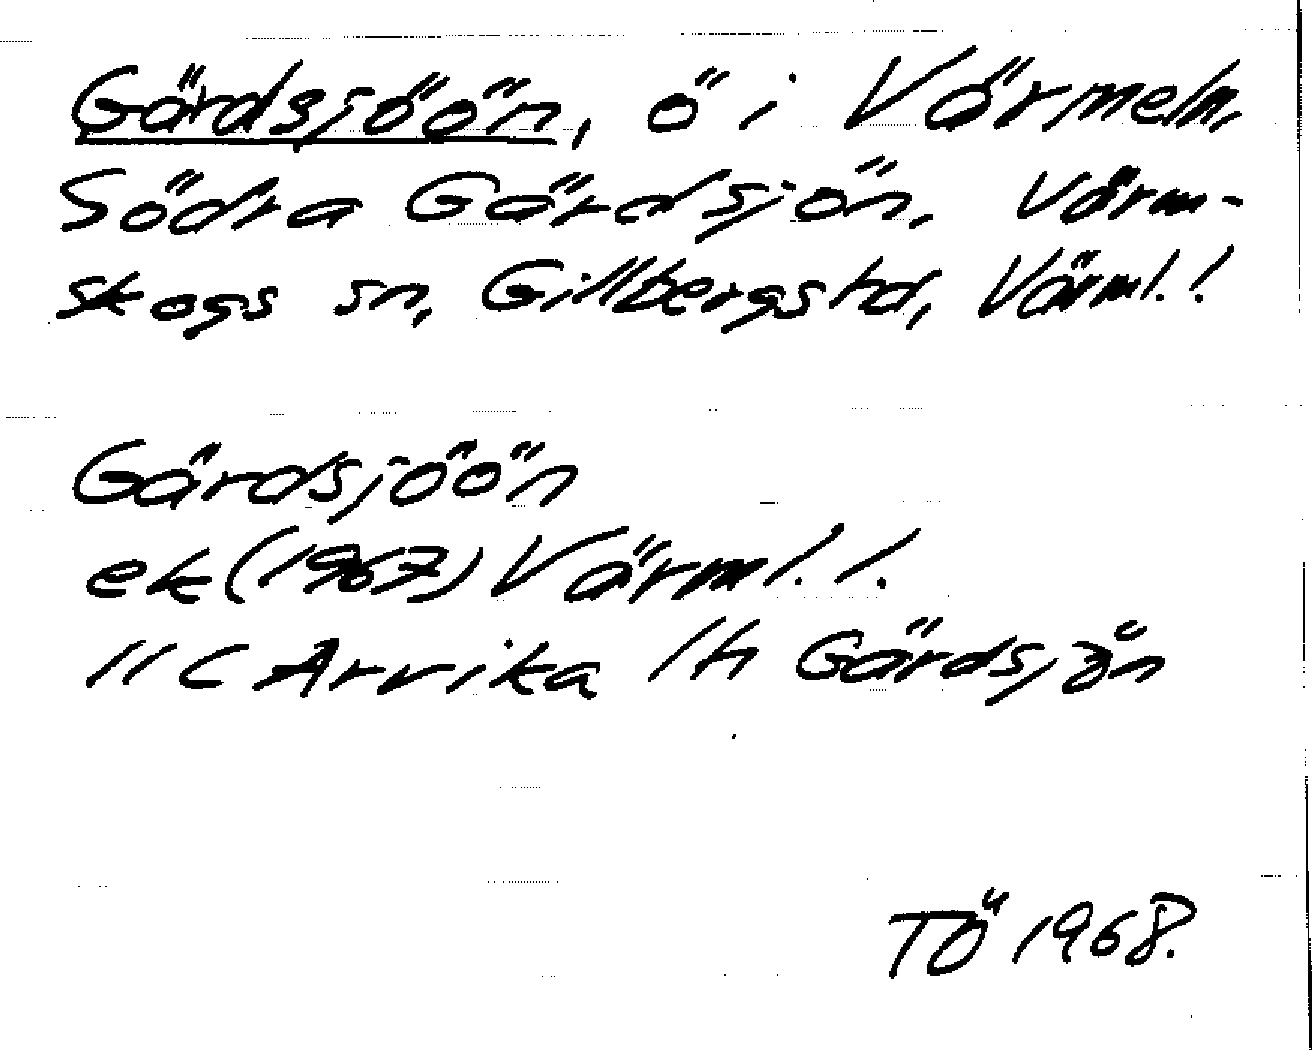 Gärdsjöön, ö i Värmeln,
Södra Gärdsjön, Värm-
skogs sn, Gillbergs hd, Värml.!
Gärdsjöön
ek (1967) Värml. l.
11 C Arvika 1h Gärdsjön
TÖ 1968.